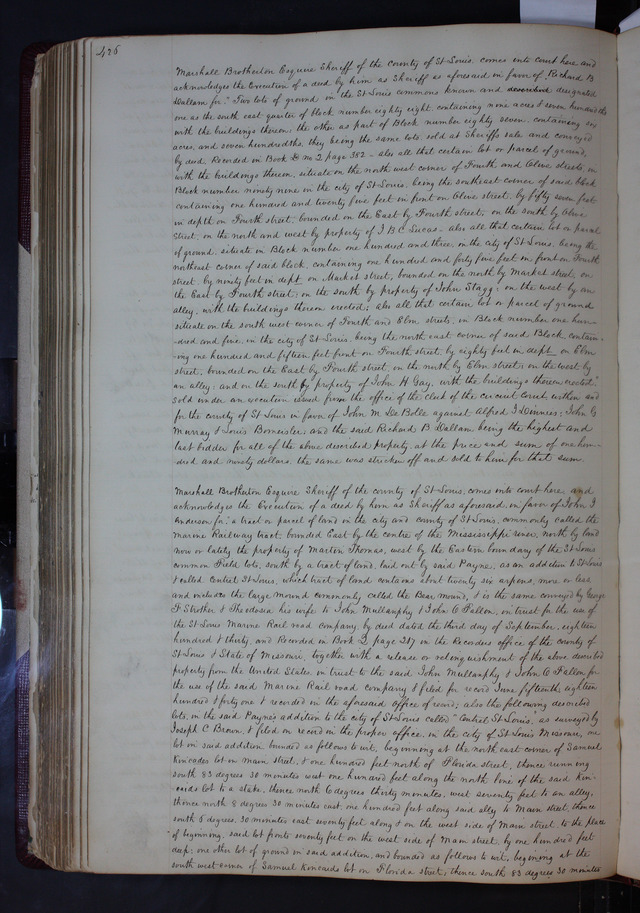 426
Marshall Brotherton Esquire Sheriff of the County of St Louis, comes into court here and
acknowledges the Execution of a deed by him as Sheriff as aforesaid in favor of Richard B
Dallam for "Two lots of ground in the St Louis commons known and described designated
one as the south east quarter of block number eighty eight, containing nine acres & seven hundredths
with the buildings thereon, the other as part of Block number eighty seven, containing six
acres, and seven hundredths, they being the same lots sold at Sheriffs sale and conveyed
by deed. Recorded in Book no 2 page 382 - also all that certain lot or parcel of ground,
with the buildings thereon, situate on the north west corner of Fourth and Olive streets, in
Block number ninety nine in the city of St Louis, being the southeast corner of said block
containing one hundred and twenty five feet in front on Olive street, by fifty seven feet
in depth on Fourth street, bounded on the East by Fourth street, on the south by Olive
street, on the north and west by property of J B C Lucas - also all that certain lot or parcel
of ground, situate in Block number one hundred and three, in the city of St Louis, being the
northeast corner of said block, containing one hundred and forty five feet in front on Fourth
street, by ninety feet in dept on Market street, bounded on the north by Market street, on
the East by Fourth street, on the south by property of John Stagg, on the west by an
alley, with the buildings thereon erected; also all that certain lot or parcel of ground
situate on the south west corner of Fourth and Elm streets, in Block number one hun-
-dred and five, in the city of St Louis, being the north east corner of said Block, contain-
-ing one hundred and fifteen feet front on Fourth street, by eighty feet in dept on Elm
street, bounded on the East by Fourth street, on the north by Elm street, on the west by
an alley; and on the south by property of John H Gay, with the buildings thereon erected."
sold under an execution issued from the office of the clerk of the circuit court, within and
for the county of St Louis in favor of John M against Alfred J ; John G
Murray & Louis , and the said Richard B Dallam, being the highest and
last bidder for all of the above described property, at the price and sum of one hun-
-dred and ninety dollars, the same was stricken off and sold to him for that sum.
Marshall Brotherton Esquire Sheriff of the county of St Louis, comes into court here and
acknowledges the Execution of a deed by him as Sheriff as aforesaid, in favor of John J
Anderson for, "a tract or parcel of land in the city and county of St Louis, commonly called the
Marine Railway tract, bounded East by the centre of the Mississippi river, north by land
now or lately the property of Martin Thomas, west by the Eastern boundary of the St Louis
common Field lots, south by a tract of land, laid out by said Payne, as an addition to St Louis
& called Central St Louis, which tract of land contains about twenty six arpens, more or less
and includes the large mound commonly called the Bear mound, & is the same conveyed by George
F Strother & Theodosia his wife to John Mullanphy & John O Fallon, in trust for the use of
the St Louis Marine Rail road company by deed dated the third day of September, eighteen
hundred & thirty and Recorded in Book Q page 217 in the Recorders office of the county of
St Louis & State of Missouri, together with a release or relinquishment of the above described
property from the United States, in trust to the said John Mullanphy & John O Fallon for
the use of the said Marine Rail road company & filed for record June fifteenth, eighteen
hundred & forty one & recorded in the aforesaid office of record; also the following described
lots, in the said Paynes addition to the city of St Louis called "Central St Louis, as surveyed by
Joseph C Brown, & filed on record in the proper office, in the city of St Louis Missouri, one
lot in said addition bounded as follows to wit, beginning at the north east corner of Samuel
Kincaides lot on Main street, & one hundred feet north of Florida street, thence running
south 83 degrees 30 minutes west one hundred feet along the north line of the said Kin-
-caids lot to a stake, thence north 6 degrees thirty minutes, west seventy feet to an alley,
thence north 8 degrees 30 minutes east, one hundred feet along said alley to Main street, thence
south 6 degrees, 30 minutes east seventy feet along & on the west side of Main street, to the place
of beginning, said lot fronts seventy feet on the west side of Main street, by one hundred feet
deep; one other lot of ground in said addition, and bounded as follows to wit, beginning at the
south west corner of Samuel Kincaids lot on Florida street, thence south 83 degrees 30 minutes